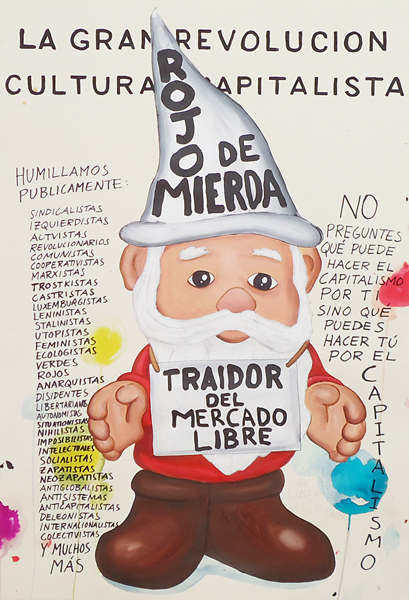 LA GRAN REVOLUCION
CULTURAL CAPITALISTA
ROJO DE
MIERDA
HUMILLAMOS
PUBLICAMENTE:
SINDICALISTAS
IZQUIERDISTAS
ACTVISTAS
REVOLUCIONARIOS
COMUNISTAS
COOPERATIVISTAS
MARXISTAS
TROSTKISTAS
CASTRISTAS
LUXEMBURGISTAS
LENINISTAS
STALINISTAS
UTOPISTAS
FEMINISTAS
ECOLOGISTAS
VERDES
ROJOS
ANARQUISTAS
DISIDENTES
LIBERTARIANOS
AUTONOMISTAS
SITUATIONISTAS
NIHILISTAS
IMPOSIBILISTAS
INTELECTUALES
SOCIALISTAS
ZAPATISTAS
NEOZAPATISTAS
ANTIGLOBALISTAS
ANTISISTEMAS
ANTICAPITALISTAS
DELEONISTAS
INTERNACIONALISTAS
COLECTIVISTAS
Y MUCHOS
MÁS
TRAIDOR
DEL
MERCADO
LIBRE
NO
PREGUNTES
QUÉ PUEDE
HACER EL
CAPITALISMO
POR TI
SINO QUÉ
PUEDES
HACER TÚ
POR EL
CAPITALISMO